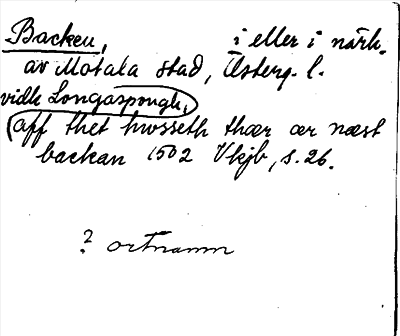 Backen, i eller i närh.
av Motala stad, Österg. l.
vidh Longaspongh,
aff thet hwsseth thær ær næst
backan 1502 Vkjb, s. 26.
? ortnamn